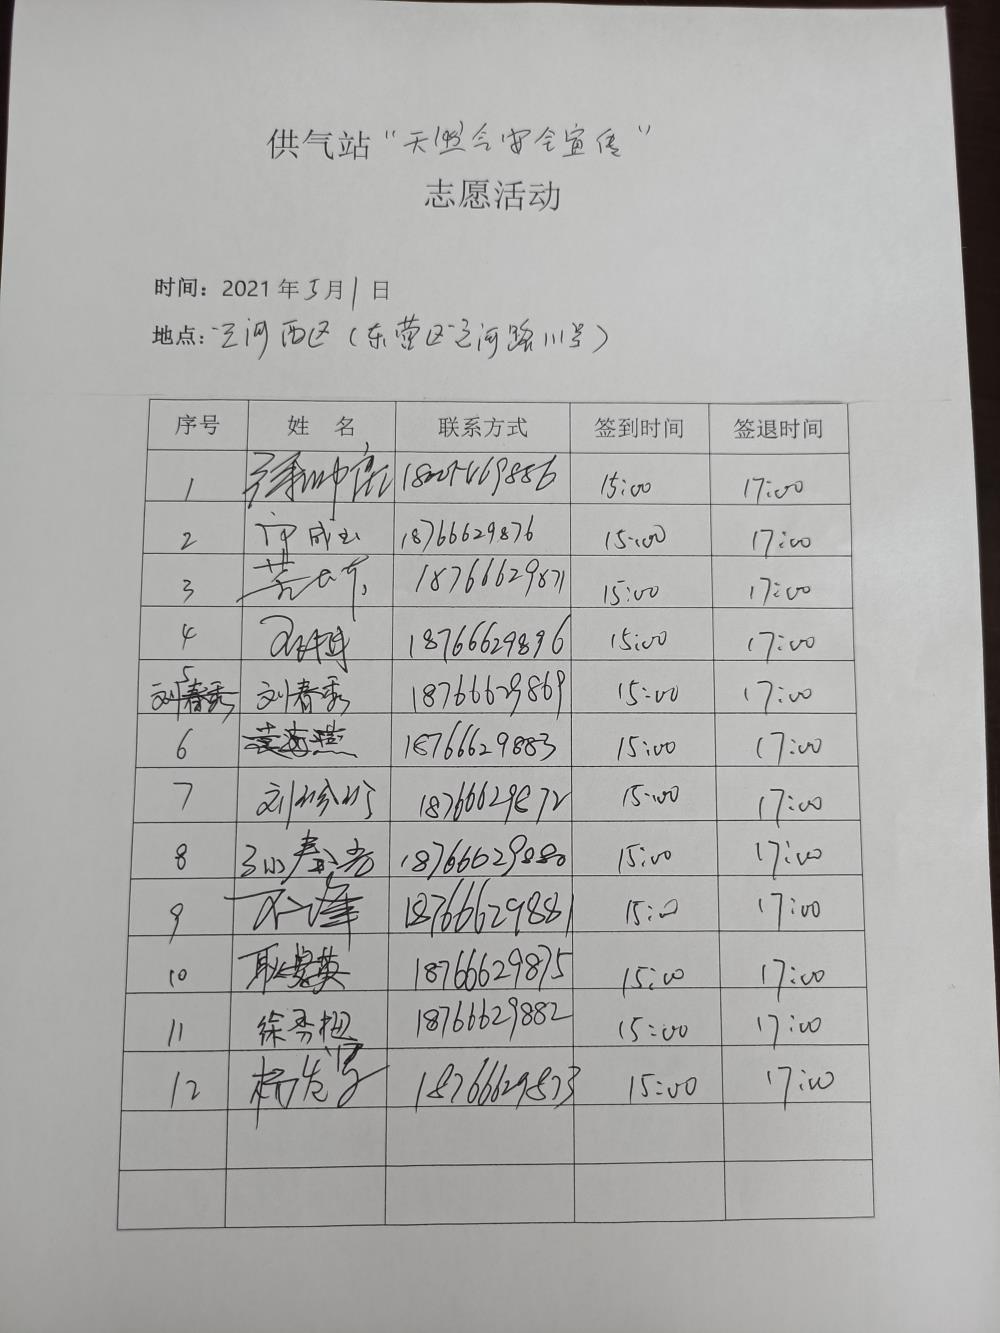 供气站“天然气安全宣传”
志愿活动
时间：2021年5月1日
地点：辽河西区（东营区辽河路111号）
序号 姓名 联系方式 签到时间 签退时间
1 15:00 17:00
2 18766629876 15:00 17:00
3 18766629871 15:00 17:00
4 18766629896 15:00 17:00
5 刘春秀 刘春秀 18766629869 15:00 17:00
6 18766629883 15:00 17:00
7 刘珍珍 18766629872 15:00 17:00
8 18766629880 15:00 17:00
9 18766629881 15:00 17:00
10 18766629875 15:00 17:00
11 徐秀 18766629882 15:00 17:00
12 杨 18766629873 15:00 17:00